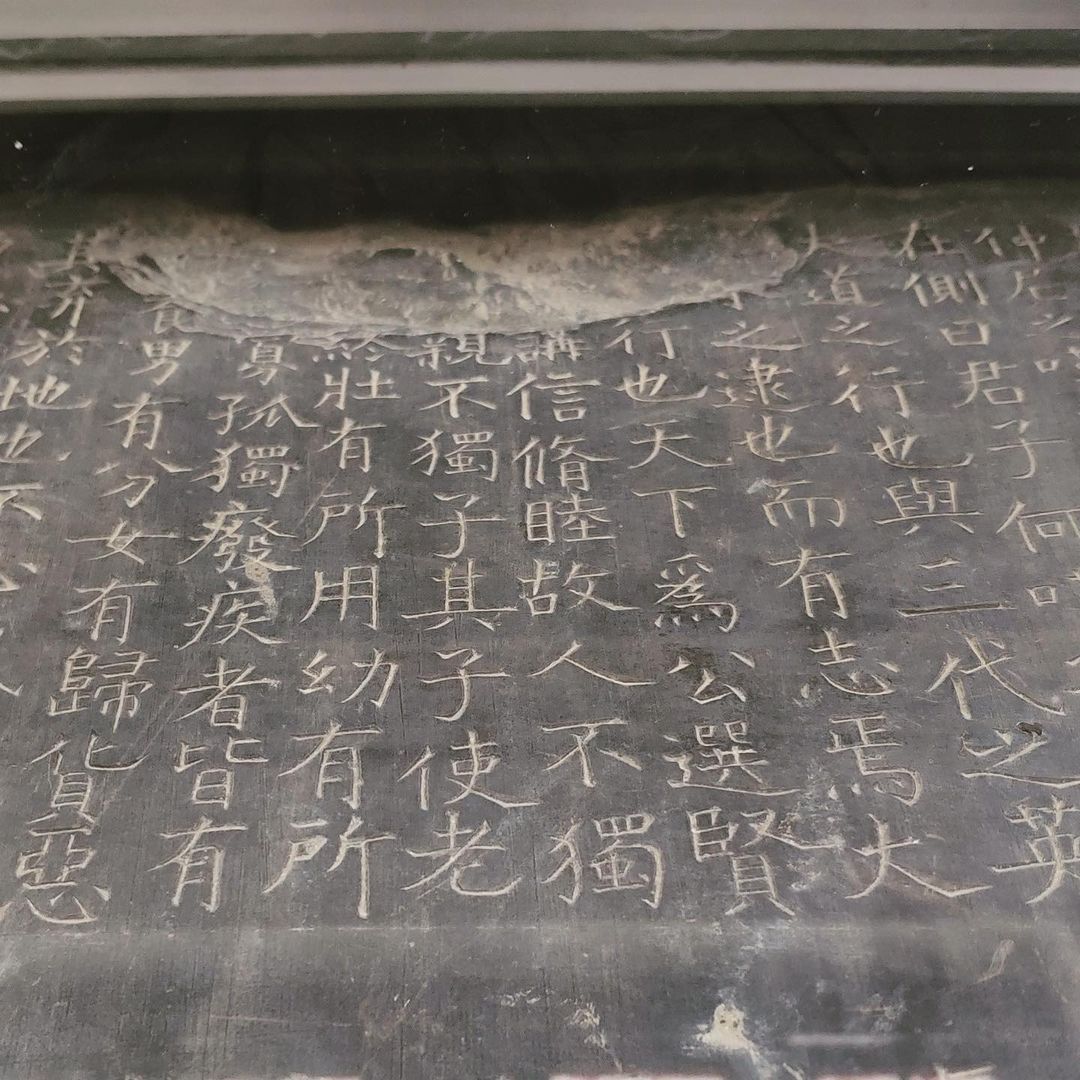 仲尼之
在側曰君子何
大道之行也與三代之英
之逮也而有志焉大
行也天下爲公選賢
講信脩睦故人不獨
親不獨子其子使老
終壯有所用幼有所
寡孤獨廢疾者皆有
男有分女有歸貨惡
其弃於地也不必